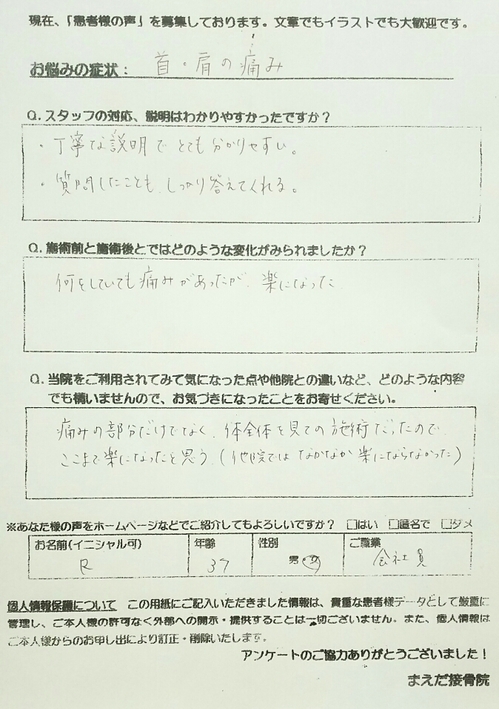 現在、「患者様の声」を募集しております。文章でもイラストでも大歓迎です。
お悩みの症状： 首・肩の痛み
Q. スタッフの対応、説明はわかりやすかったですか？
・丁寧な説明でとても分かりやすい。
・質問したことも、しっかり答えてくれる。
Q. 施術前と施術後とではどのような変化がみられましたか？
何をしていても痛みがあったが、楽になった
Q. 当院をご利用されてみて気になった点や他院との違いなど、どのような内容
でも構いませんので、お気づきになったことをお寄せください。
痛みの部分だけでなく、体全体を見ての施術だったので
ここまで楽になったと思う（他院ではなかなか楽にならなかった）
※あなた様の声をホームページなどでご紹介してもよろしいですか？ □はい □匿名で □ダメ
お名前(イニシャル可) 年齢 性別 ご職業
R 37 男・女 会社員
個人情報保護について この用紙にご記入いただきました情報は、貴重な患者様データとして厳重に
管理し、ご本人様の許可なく外部への開示・提供することは一切ございません。また、個人情報は
ご本人様からのお申し出により訂正・削除いたします。
アンケートのご協力ありがとうございました！
まえだ接骨院